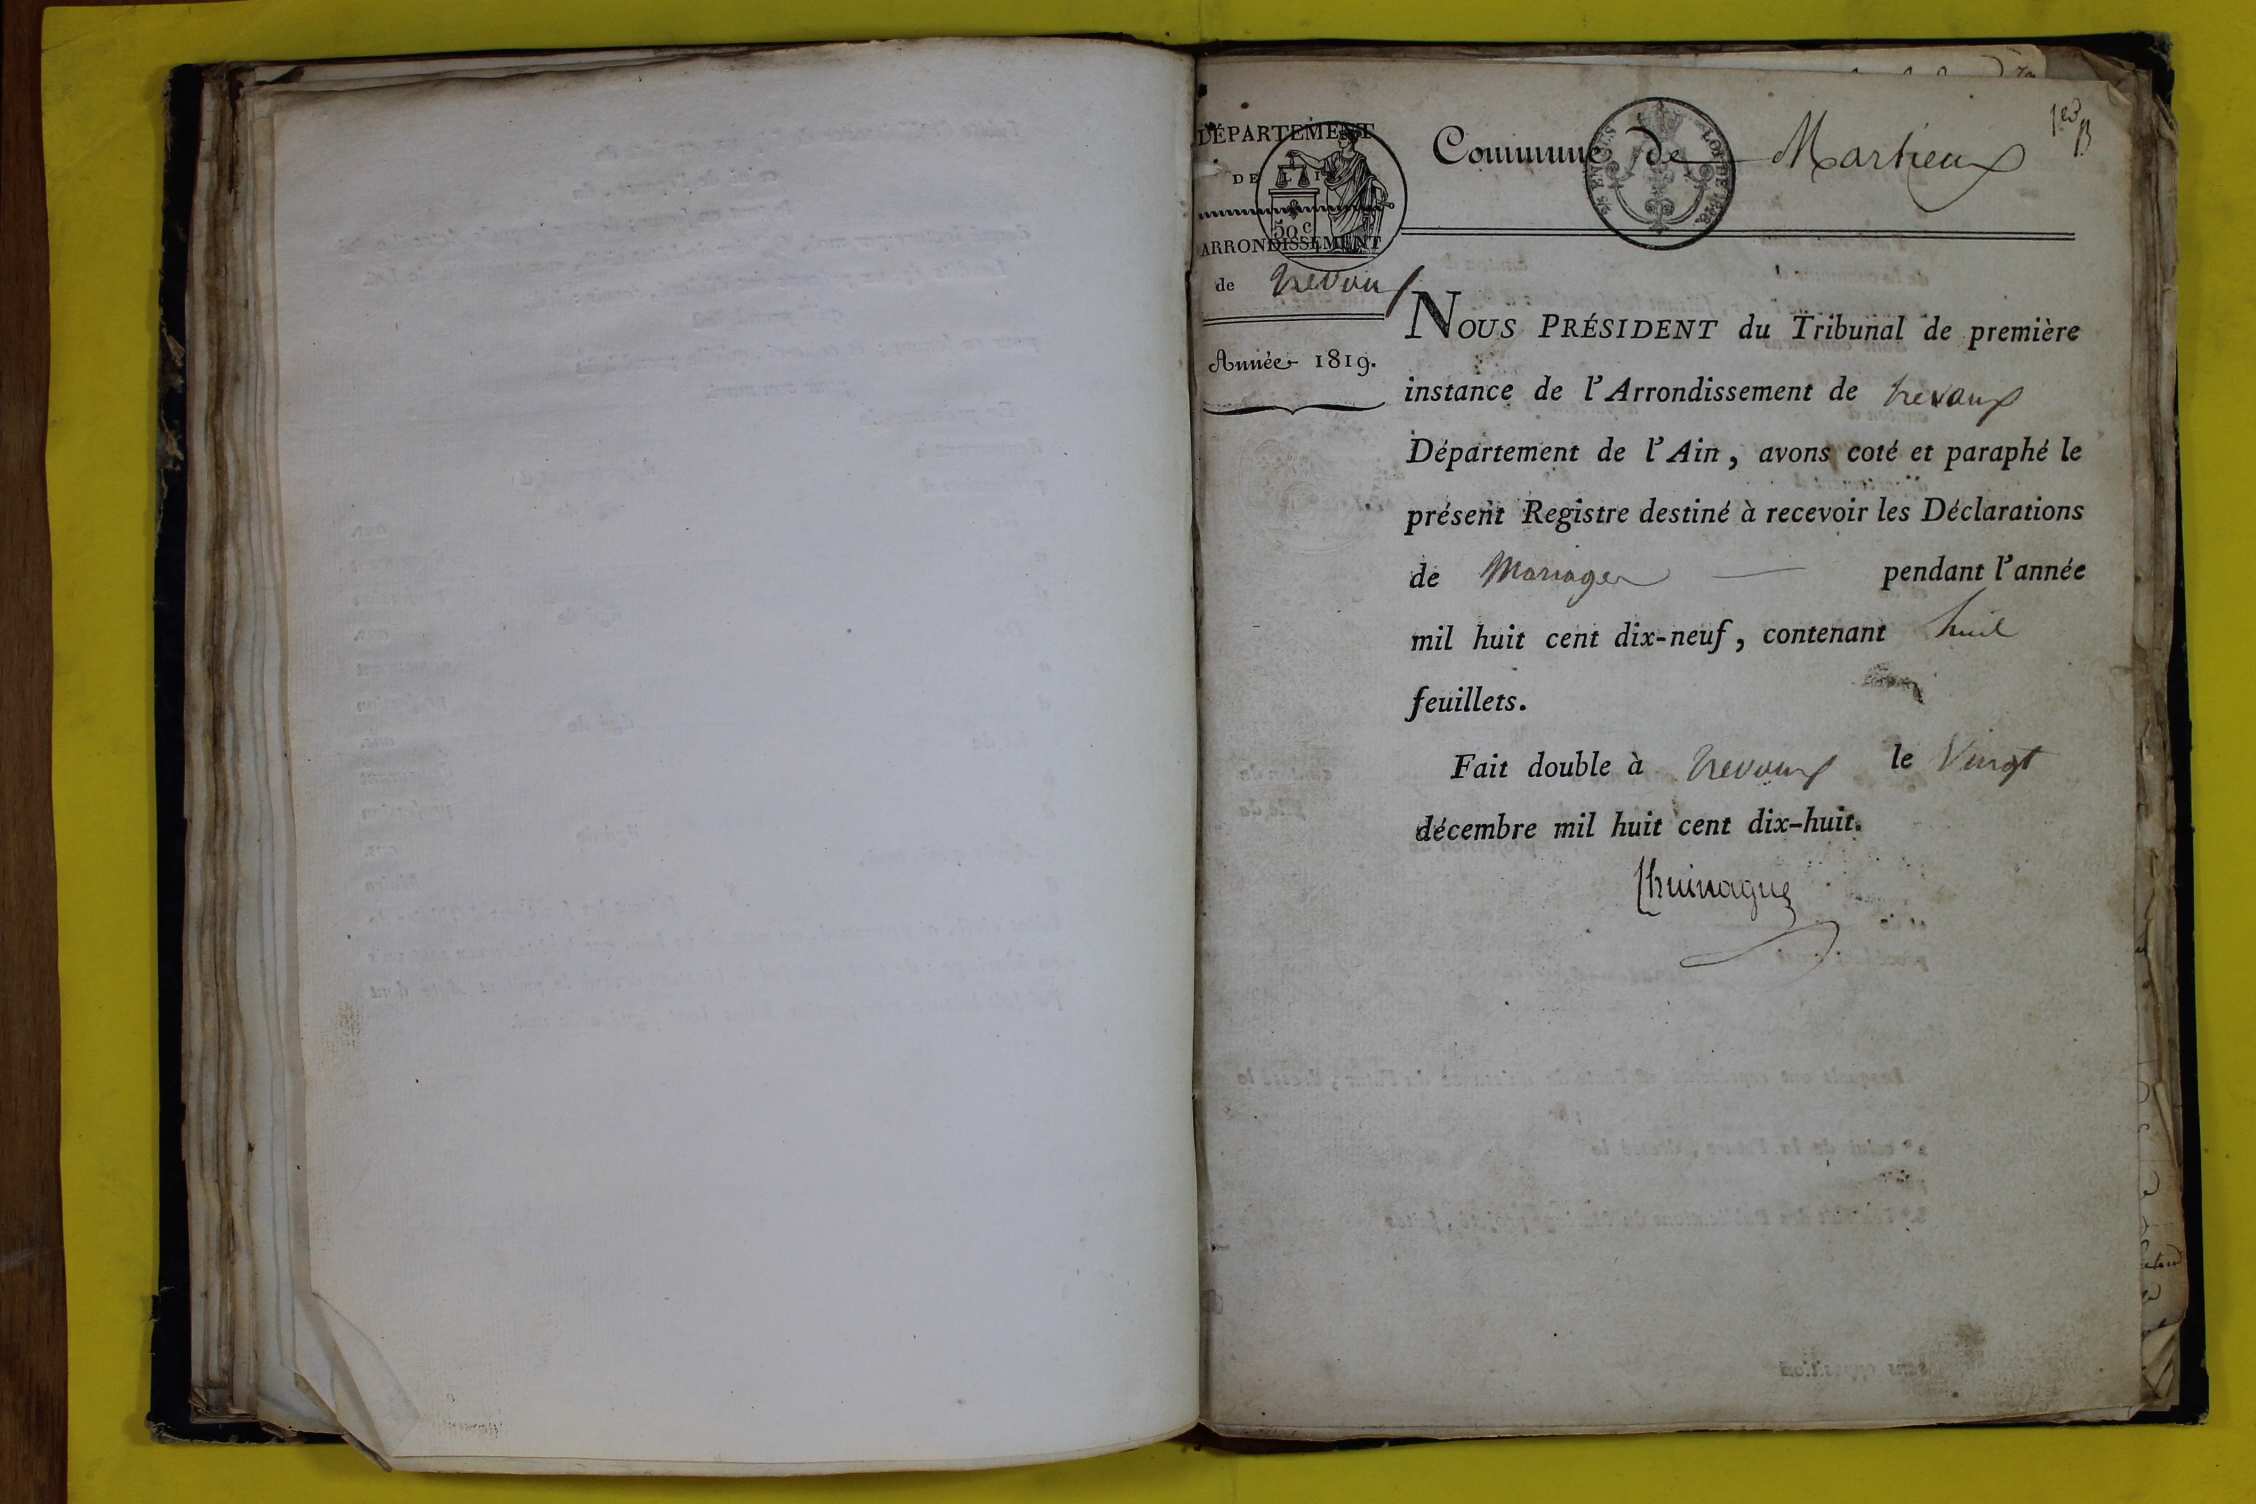 DÉPARTEMENT
DE L'AIN
ARRONDISSEMENT
de Trevoux
Année 1819.
50 c
Commune de Marlieux
1er
NOUS PRÉSIDENT du Tribunal de première
instance de l'Arrondissement de Trevoux
Département de l'Ain, avons coté et paraphé le
présent Registre destiné à recevoir les Déclarations
de Mariages pendant l'année
mil huit cent dix-neuf, contenant huit
feuillets.
Fait double à Trevoux le Vingt
décembre mil huit cent dix-huit.